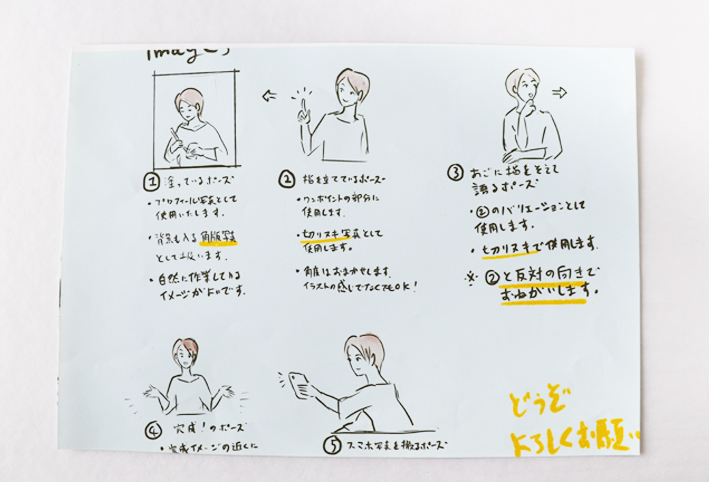 images
① 塗っているポーズ
・プロフィール写真として
使用いたします。
・背景も入る角版写真
として扱います。
・自然に作業している
イメージがよいです。
② 指を立てているポーズ
・ワンポイントの部分に
使用します。
・切りヌキ写真として
使用します。
・角度はおまかせします。
イラストの感じでなくてもOK!
③ あごに指をそえて
語るポーズ
・②のバリエーションとして
使用します。
・切りヌキで使用します。
※ ②と反対の向きで
おねがいします。
④ 完成!のポーズ
・完成イメージの近くに
⑤ スマホ写真を撮るポーズ
どうぞ
よろしくお願い